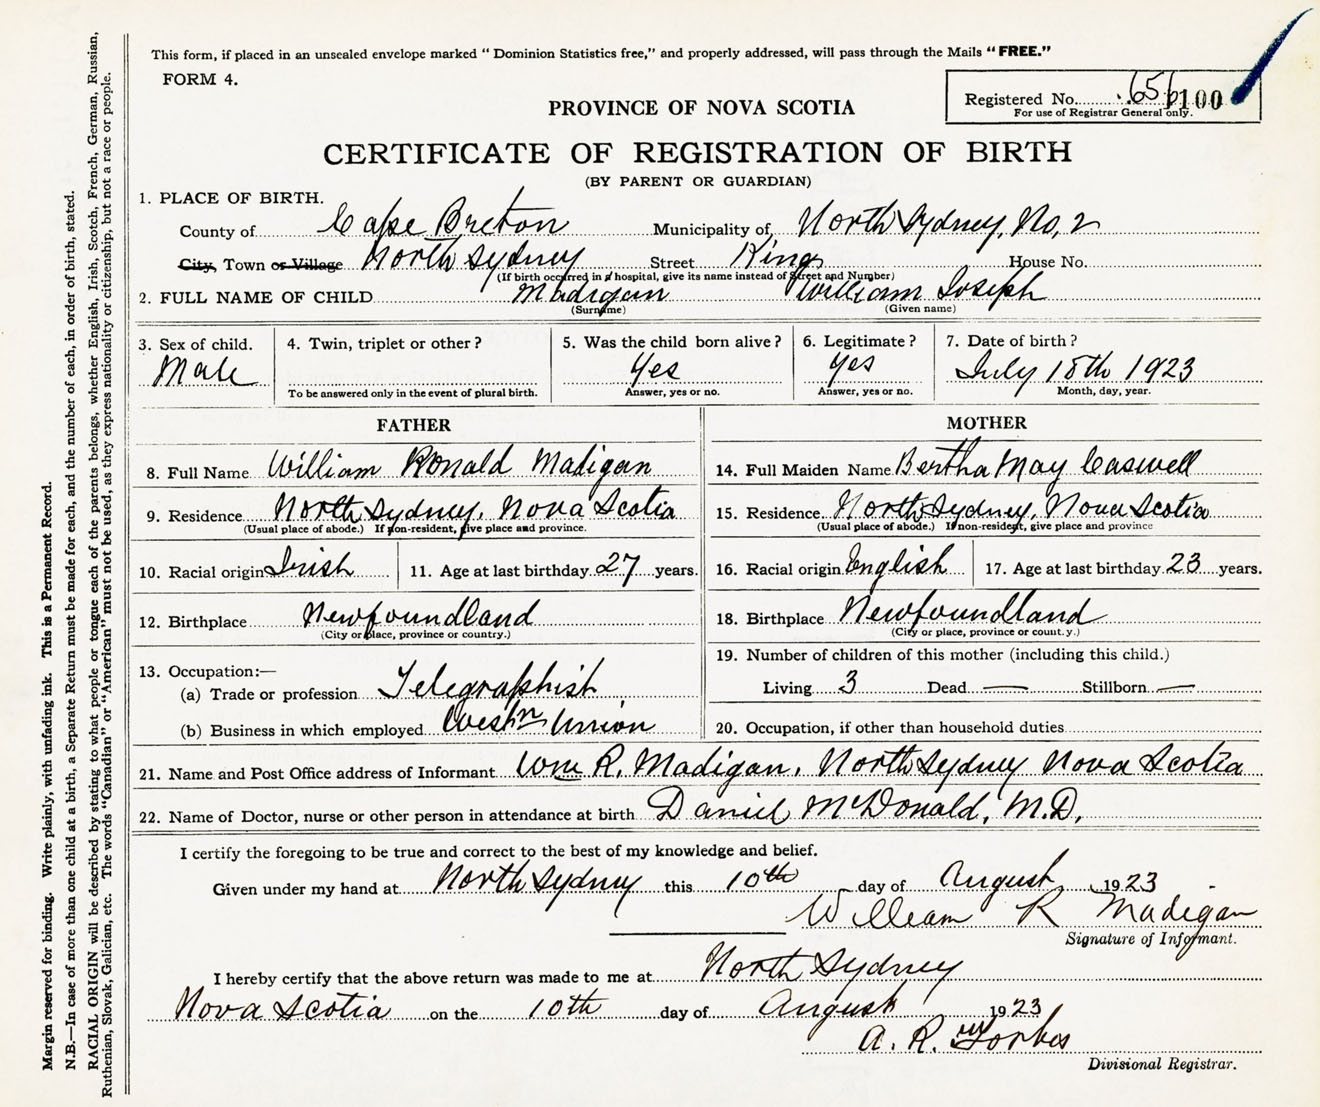 This form, if placed in an unsealed envelope marked " Dominion Statistics free," and properly addressed, will pass through the Mails " FREE."
FORM 4.
Registered No. 656100
For use of Registrar General only.
PROVINCE OF NOVA SCOTIA
CERTIFICATE OF REGISTRATION OF BIRTH
(BY PARENT OR GUARDIAN)
1. PLACE OF BIRTH.
County of Cape Breton Municipality of North Sydney, No, 2
City, Town or Village North Sydney Street King House No.
(If birth occurred in a hospital, give its name instead of Street and Number)
2. FULL NAME OF CHILD Madigan William Joseph
(Surname) (Given name)
3. Sex of child. 4. Twin, triplet or other? 5. Was the child born alive? 6. Legitimate? 7. Date of birth?
Male Yes Yes July 18th 1923
To be answered only in the event of plural birth. Answer, yes or no. Answer, yes or no. Month, day, year.
FATHER MOTHER
8. Full Name William Ronald Madigan 14. Full Maiden Name Bertha May Caswell
9. Residence North Sydney, Nova Scotia 15. Residence North Sydney, Nova Scotia
(Usual place of abode.) If non-resident, give place and province. (Usual place of abode.) If non-resident, give place and province
10. Racial origin Irish 11. Age at last birthday 27 years. 16. Racial origin English 17. Age at last birthday 23 years.
12. Birthplace Newfoundland 18. Birthplace Newfoundland
(City or place, province or country.) (City or place, province or count.y.)
13. Occupation:— 19. Number of children of this mother (including this child.)
(a) Trade or profession Telegraphist Living 3 Dead — Stillborn —
(b) Business in which employed Westn Union 20. Occupation, if other than household duties
21. Name and Post Office address of Informant Wm R. Madigan, North Sydney Nova Scotia
22. Name of Doctor, nurse or other person in attendance at birth Daniel McDonald, M.D.
I certify the foregoing to be true and correct to the best of my knowledge and belief.
Given under my hand at North Sydney this 10th day of August 1923
William R Madigan
Signature of Informant.
I hereby certify that the above return was made to me at North Sydney
Nova Scotia on the 10th day of August 1923
A. R. Forbes
Divisional Registrar.
Margin reserved for binding. Write plainly, with unfading ink. This is a Permanent Record.
N.B.—In case of more than one child at a birth, a Separate Return must be made for each, and the number of each, in order of birth, stated.
RACIAL ORIGIN will be described by stating to what people or tongue each of the parents belongs, whether English, Irish, Scotch, French, German, Russian,
Ruthenian, Slovak, Galician, etc. The words "Canadian" or "American" must not be used, as they express nationality or citizenship, but not a race or people.